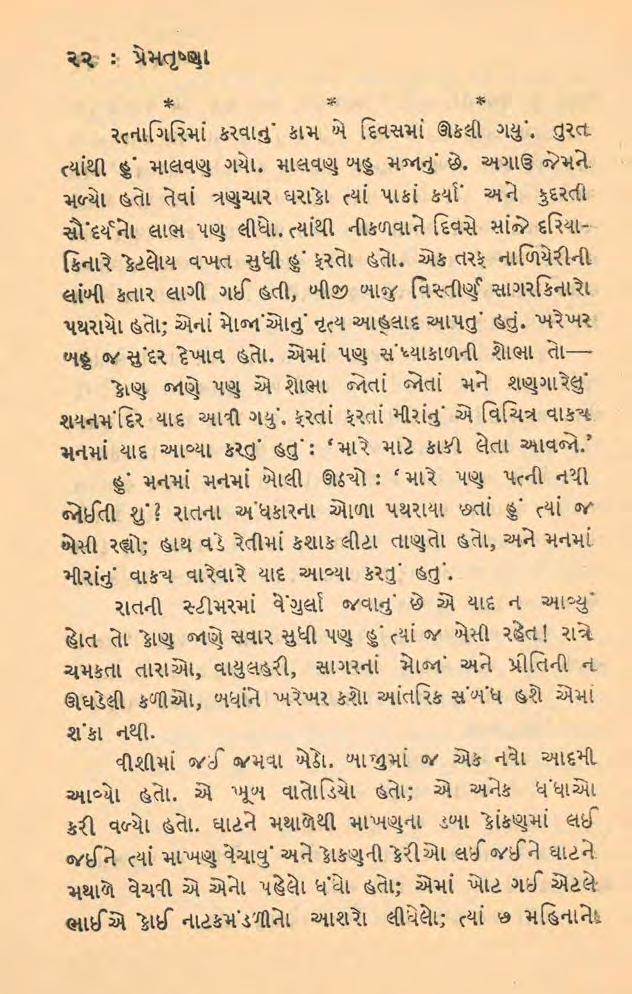 ૨૨ : પ્રેમતૃષ્ણા
* * *
રત્નાગિરિમાં કરવાનું કામ બે દિવસમાં ઊકલી ગયું. તુરત
ત્યાંથી હું માલવણ ગયો. માલવણ બહુ મજાનું છે. અગાઉ જેમને
મળ્યો હતો તેવાં ત્રણચાર ઘરાકો ત્યાં પાકાં કર્યાં અને કુદરતી
સૌંદર્યનો લાભ પણ લીધો. ત્યાંથી નીકળવાને દિવસે સાંજે દરિયા-
કિનારે કેટલોય વખત સુધી હું ફરતો હતો. એક તરફ નાળિયેરીની
લાંબી કતાર લાગી ગઈ હતી, બીજી બાજુ વિસ્તીર્ણ સાગરકિનારો
પથરાયો હતો; એનાં મોજાંઓનું નૃત્ય આહ્‌લાદ આપતું હતું. ખરેખર
બહુ જ સુંદર દેખાવ હતો. એમાં પણ સંધ્યાકાળની શોભા તો—
કોણ જાણે પણ એ શોભા જોતાં જોતાં મને શણગારેલું
શયનમંદિર યાદ આવી ગયું. ફરતાં ફરતાં મીરાંનું એ વિચિત્ર વાક્ય
મનમાં યાદ આવ્યા કરતું હતું : ‘મારે માટે કાકી લેતા આવજો.’
હું મનમાં મનમાં બોલી ઊઠ્યો : ‘મારે પણ પત્ની નથી
જોઈતી શું? રાતના અંધકારના ઓળા પથરાયા છતાં હું ત્યાં જ
બેસી રહ્યો; હાથ વડે રેતીમાં કશાક લીટા તાણતો હતો, અને મનમાં
મીરાંનું વાક્ય વારેવારે યાદ આવ્યા કરતું હતું.
રાતની સ્ટીમરમાં વેંગુર્લા જવાનું છે એ યાદ ન આવ્યું
હોત તો કોણ જાણે સવાર સુધી પણ હું ત્યાં જ બેસી રહેત! રાત્રે
ચમકતા તારાઓ, વાયુલહરી, સાગરનાં મોજાં અને પ્રીતિની ન
ઊઘડેલી કળીઓ, બધાંને ખરેખર કશો આંતરિક સંબંધ હશે એમાં
શંકા નથી.
વીશીમાં જઈ જમવા બેઠો. બાજુમાં જ એક નવો આદમી
આવ્યો હતો. એ ખૂબ વાતોડિયો હતો; એ અનેક ધંધાઓ
કરી વળ્યો હતો. ઘાટને મથાળેથી માખણના ડબા કોંકણમાં લઈ
જઈને ત્યાં માખણ વેચાવું અને કોકણની કેરીઓ લઈ જઈને ઘાટને
મથાળે વેચવી એ એનો પહેલો ધંધો હતો; એમાં ખોટ ગઈ એટલે
ભાઈએ કોઈ નાટકમંડળીનો આશરો લીધેલો; ત્યાં છ મહિનાનો